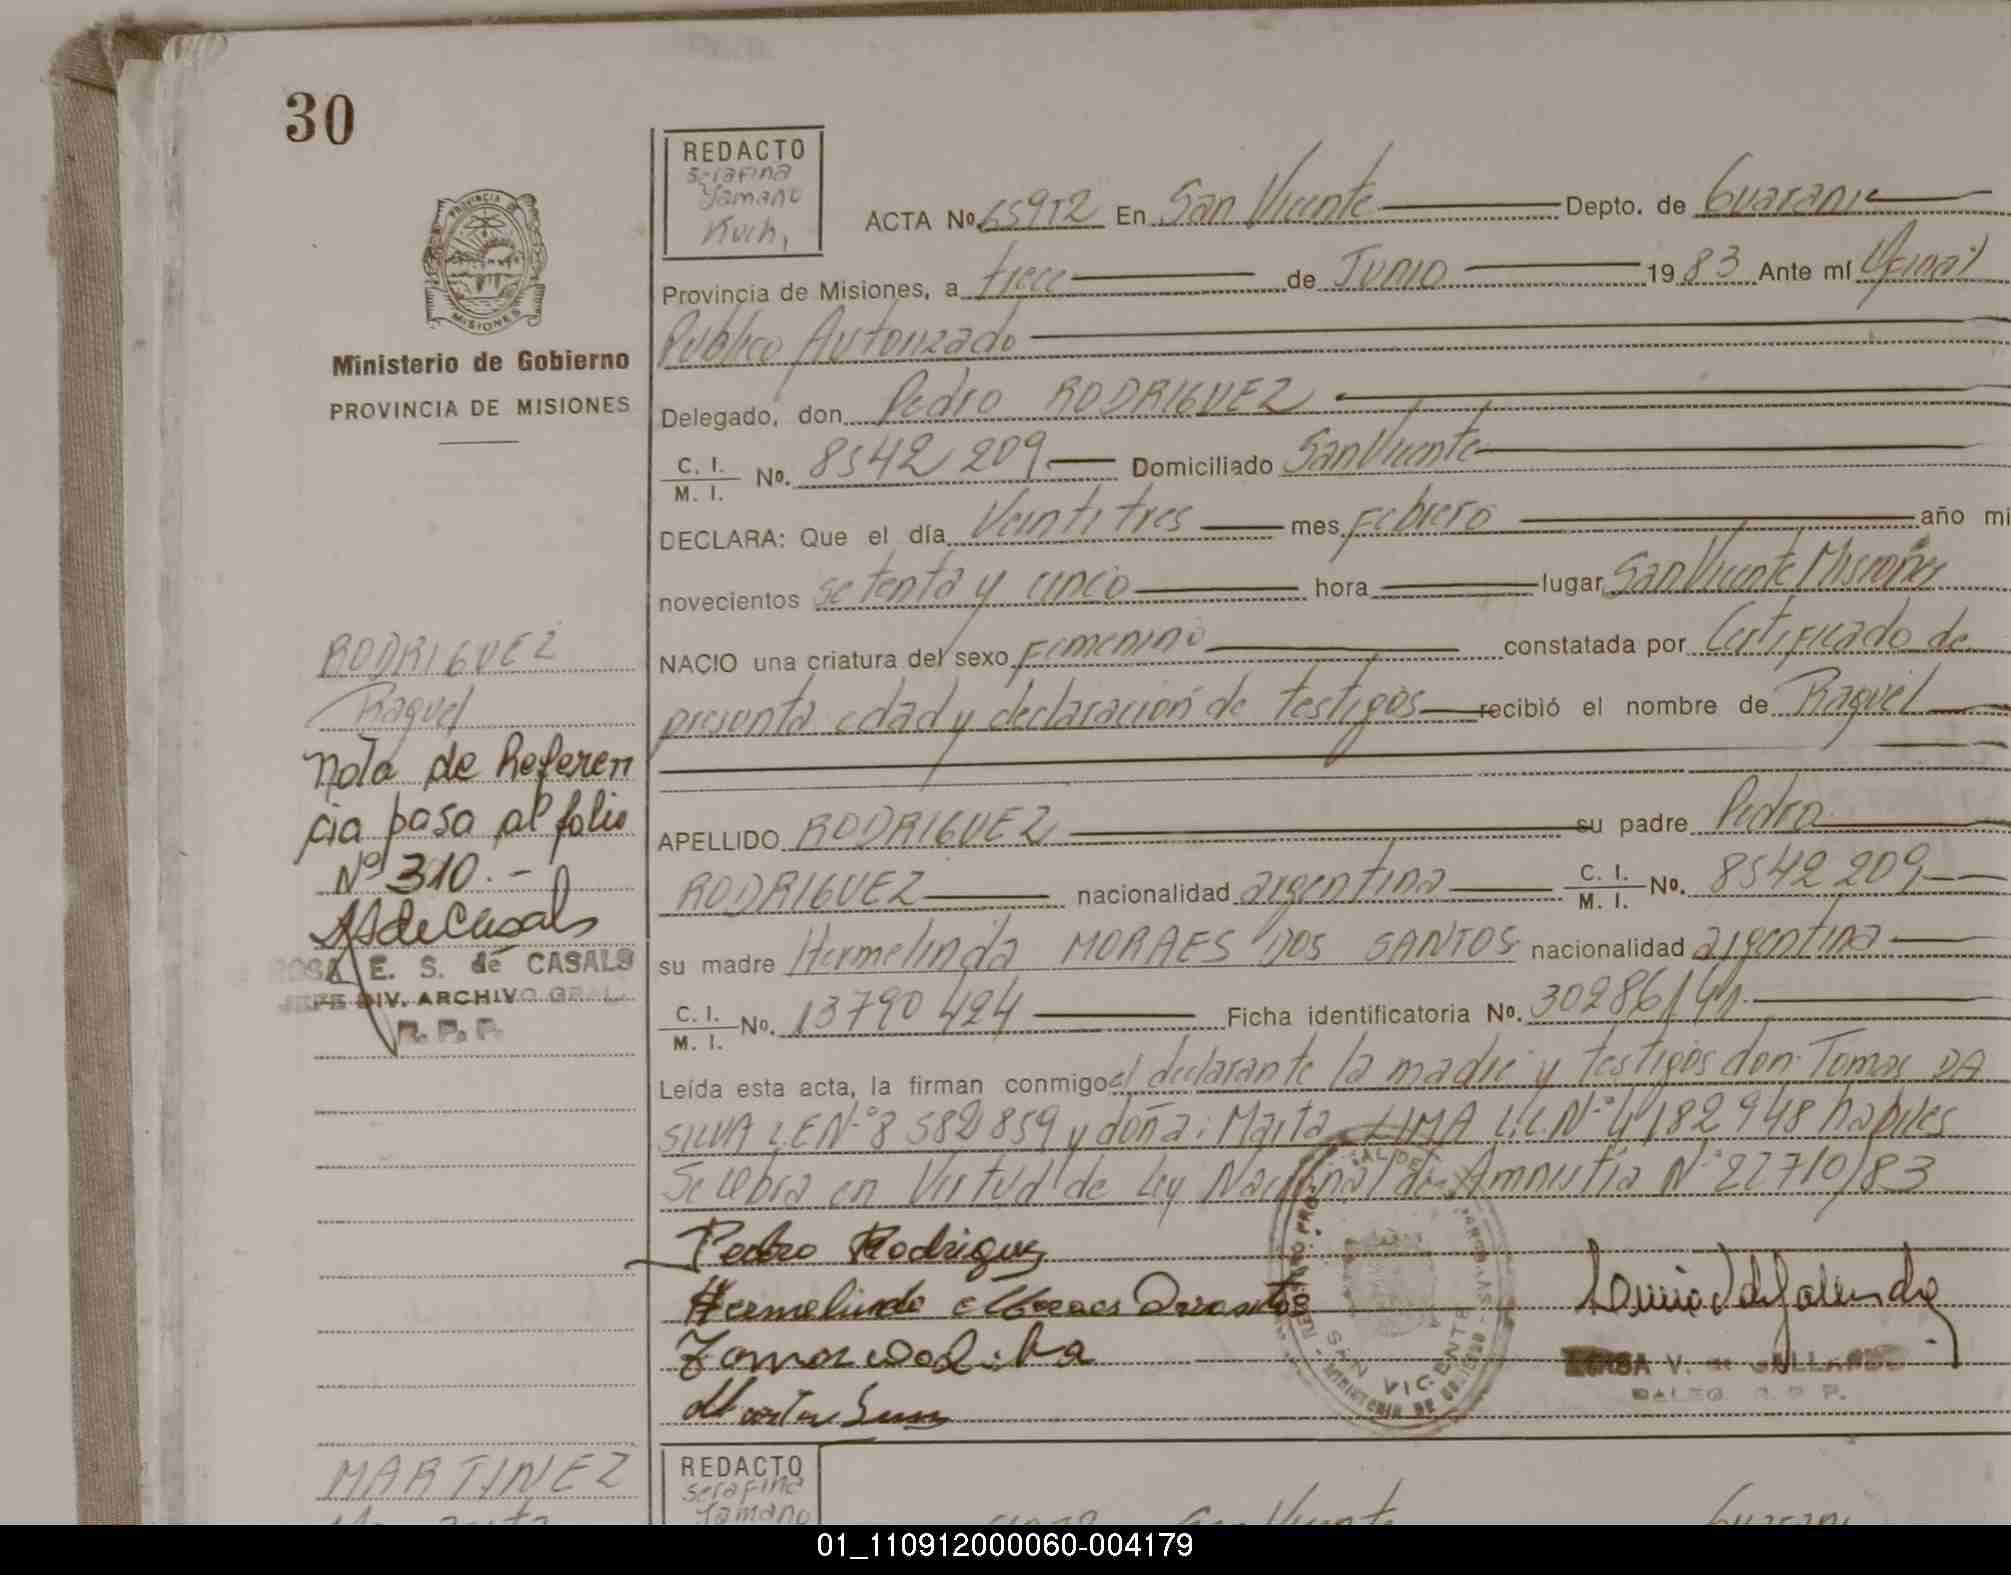 30
REDACTO
serafina
Yamano
Kuch,
ACTA No. 65972 En San Vicente Depto. de Guarani
Provincia de Misiones, a trece de Junio 1983 Ante mí Oficial
Publico Autorizado
Delegado, don Pedro RODRIGUEZ
C. I.
M. I. No. 8542 209 Domiciliado San Vicente
DECLARA: Que el día Veinti tres mes Febrero año mi
novecientos setenta y cinco hora lugar San Vicente Misiones
NACIO una criatura del sexo Femenino constatada por Certificado de
presunta edad y declaración de testigos recibió el nombre de Raquel
APELLIDO RODRIGUEZ su padre Pedro
RODRIGUEZ nacionalidad argentina C. I.
M. I. No. 8542 209
su madre Hermelinda MORAES DOS SANTOS nacionalidad argentina
C. I.
M. I. No. 13790 424 Ficha identificatoria No. 30286/41
Leída esta acta, la firman conmigo el declarante la madre y testigos don: Tomas DA
SILVA L.E Nº 8 582 859 y doña: Marta LIMA L.C. Nº 4 182 948 habiles
Se labra en Virtud de Ley Nacional de Amnistía Nº 22710/83
Pedro Rodriguez
Hermelinda Moraes Dos santos
Tomas da Silva
Marta Lima
SAN VICENTE
V. de GALLARDO
R. P. P.
PROVINCIA DE
MISIONES
Ministerio de Gobierno
PROVINCIA DE MISIONES
RODRIGUEZ
Raquel
Nota de Referen
cia pasa al folio
Nº 310.-
ROSA E. S. de CASALS
JEFE DIV. ARCHIVO GRAL.
R. P. P.
MARTINEZ
REDACTO
serafina
Yamano
San Vicente
Guarani
01_110912000060-004179